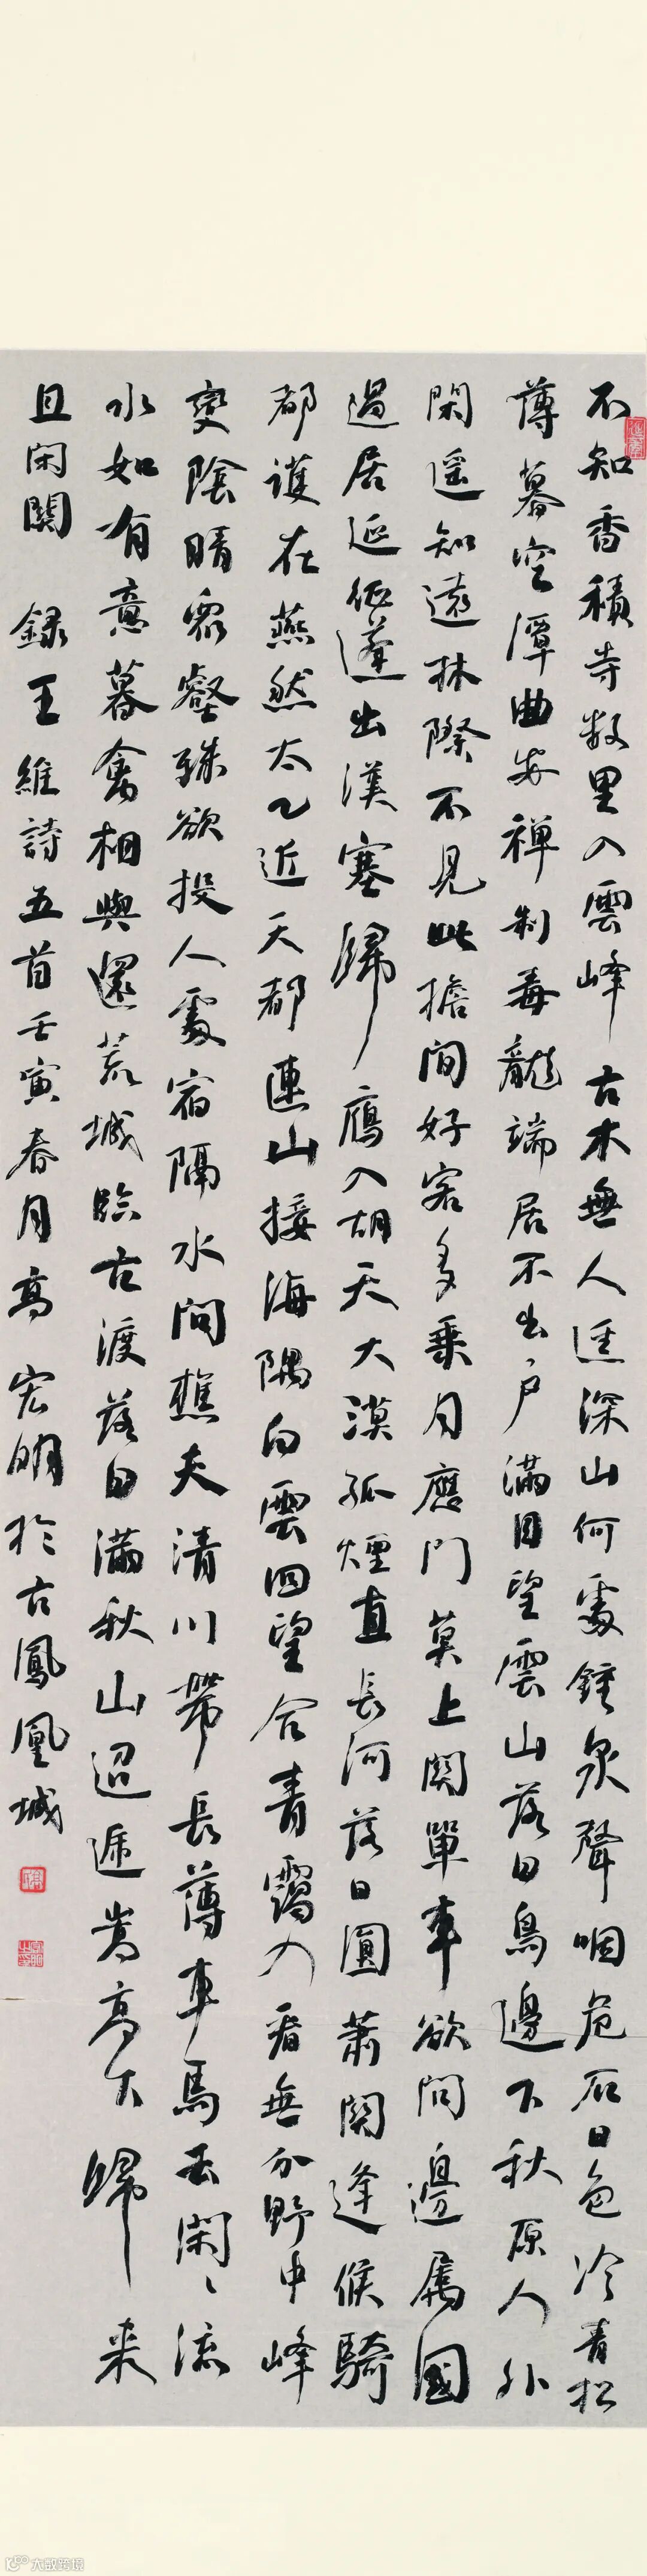 不知香積寺數里入雲峰古木無人逕深山何處鐘泉聲咽危石日色冷青松
薄暮空潭曲安禪制毒龍端居不出戶滿目望雲山落日鳥邊下秋原人外
閑遥知遠林際不見此檐間好客多乘月應門莫上關單車欲問邊屬國
過居延征蓬出漢塞歸鴈入胡天大漠孤煙直長河落日圓蕭關逢候騎
都護在燕然太乙近天都連山接海隅白雲回望合青靄入看無分野中峰
變陰晴衆壑殊欲投人處宿隔水問樵夫清川帶長薄車馬去閑〻流
水如有意暮禽相與還荒城臨古渡落日滿秋山迢遞嵩高下歸来
且閑關 録王維詩五首壬寅春月高宏明於古鳳凰城
大數跨境